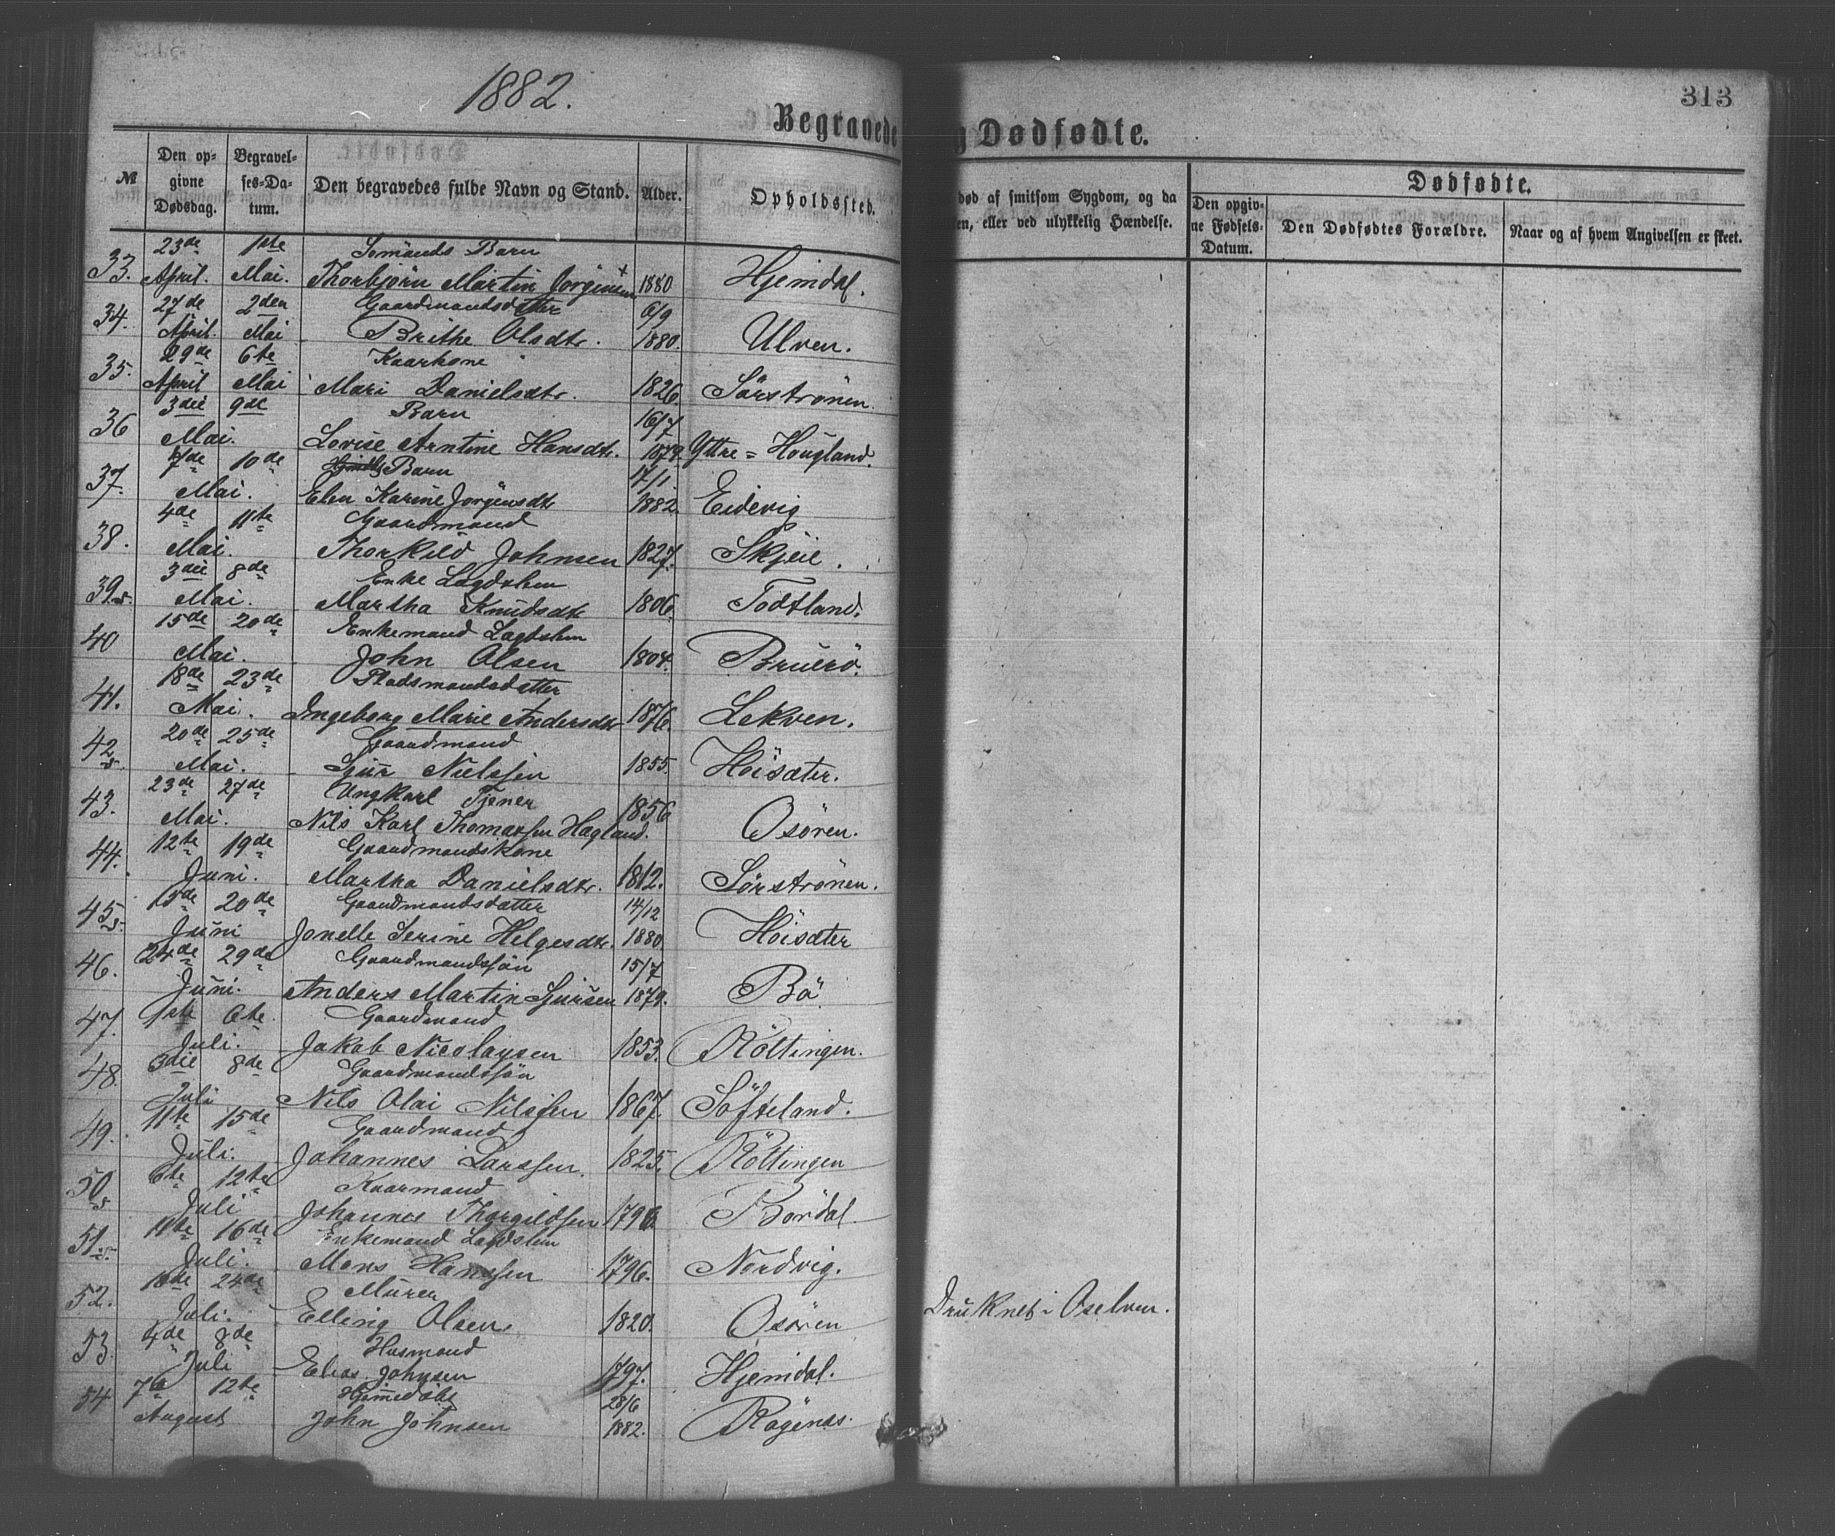 1882.
313
Begravede
g Dødfødte.
№
Den op-
givne
Dødsdag.
Begravel-
ses-Da-
tum.
Den begravedes fulde Navn og Stand.
Alder.
Opholdssted.
død af smitsom Sygdom, og da
en, eller ved ulykkelig Hændelse.
Dødfødte.
Den opgiv-
ne Fødsels-
Datum.
Den Dødfødtes Forældre.
Naar og af hvem Angivelsen er skeet.
23de 1ste Sömands Barn
33. April. Mai. Thorbjörn Martin Jörgensen 1880 Hjemdal.
27de 2den Gaardmandsdatter 6/9
34. April. Mai Brithe Olsdtr. 1880. Ulven.
29de 6te Kaarkone
35. April Mai Mari Danielsdtr. 1826. Sörströnen.
3die 9de Barn 16/7
36 Mai. Lovise Arntine Hansdtr. 1879. Yttre=Hougland.
7de 10de Barn 17/1
37. Mai. Elen Karine Jorgensdtr 1882. Eidevig
4de 11te Gaardmand
38. Mai. Thorkild Johnsen 1827. Skjeie.
3die 8de Enke Lægdslem
39 s. Mai. Martha Knudsdtr 1806. Todtland.
15de 20de Enkemand Lægdslem
40 Mai. John Olsen 1804. Bruerö.
18de 23de Pladsmandsdatter
41. Mai. Ingeborg Marie Andersdtr 1876. Lekven.
20de 25de Gaardmand
42 s. Mai. Sjur Nielssen 1855. Höisæter.
23de 27de Ungkarl Tjener
43. Mai. Nils Karl Thomassen Hagland. 1856 Osören.
12te 19de Gaardmandskone
44. Juni. Martha Danielsdtr. 1812. Sörströnen.
15de 20de Gaardmandsdatter 14/12
45 s. Juni Jonelle Serine Helgesdtr. 1880. Höisæter
24de 29de Gaardmandssön 15/7
46. Juni. Anders Martin Sjursen 1879. Bö
1ste 6te Gaardmand
47. Juli. Jakob Nicolaysen 1853. Röltingen.
3die 8de Gaardmandssön
48. Juli Nils Olai Nilssen 1867. Söfteland.
11te 15de Gaardmand
49. Juli. Johannes Larssen. 1825. Röltingen
6te 12te Kaarmand
50 s Juli Johannes Thorgildsen 1796. Bördal
11te 16de Enkemand Lægdslem
51 s. Juli. Mons Hanssen 1796. Nordvig.
18de 24de Murer
52. Juli. Elling Olsen 1820. Osören Druknet i Oselven.
4de 8de Husmand
53. Juli Elias Johnsen 1797. Hjemdal.
7de 12te Hjemedöbt 28/6
54 August John Johnsen 1882. Rögenæs.